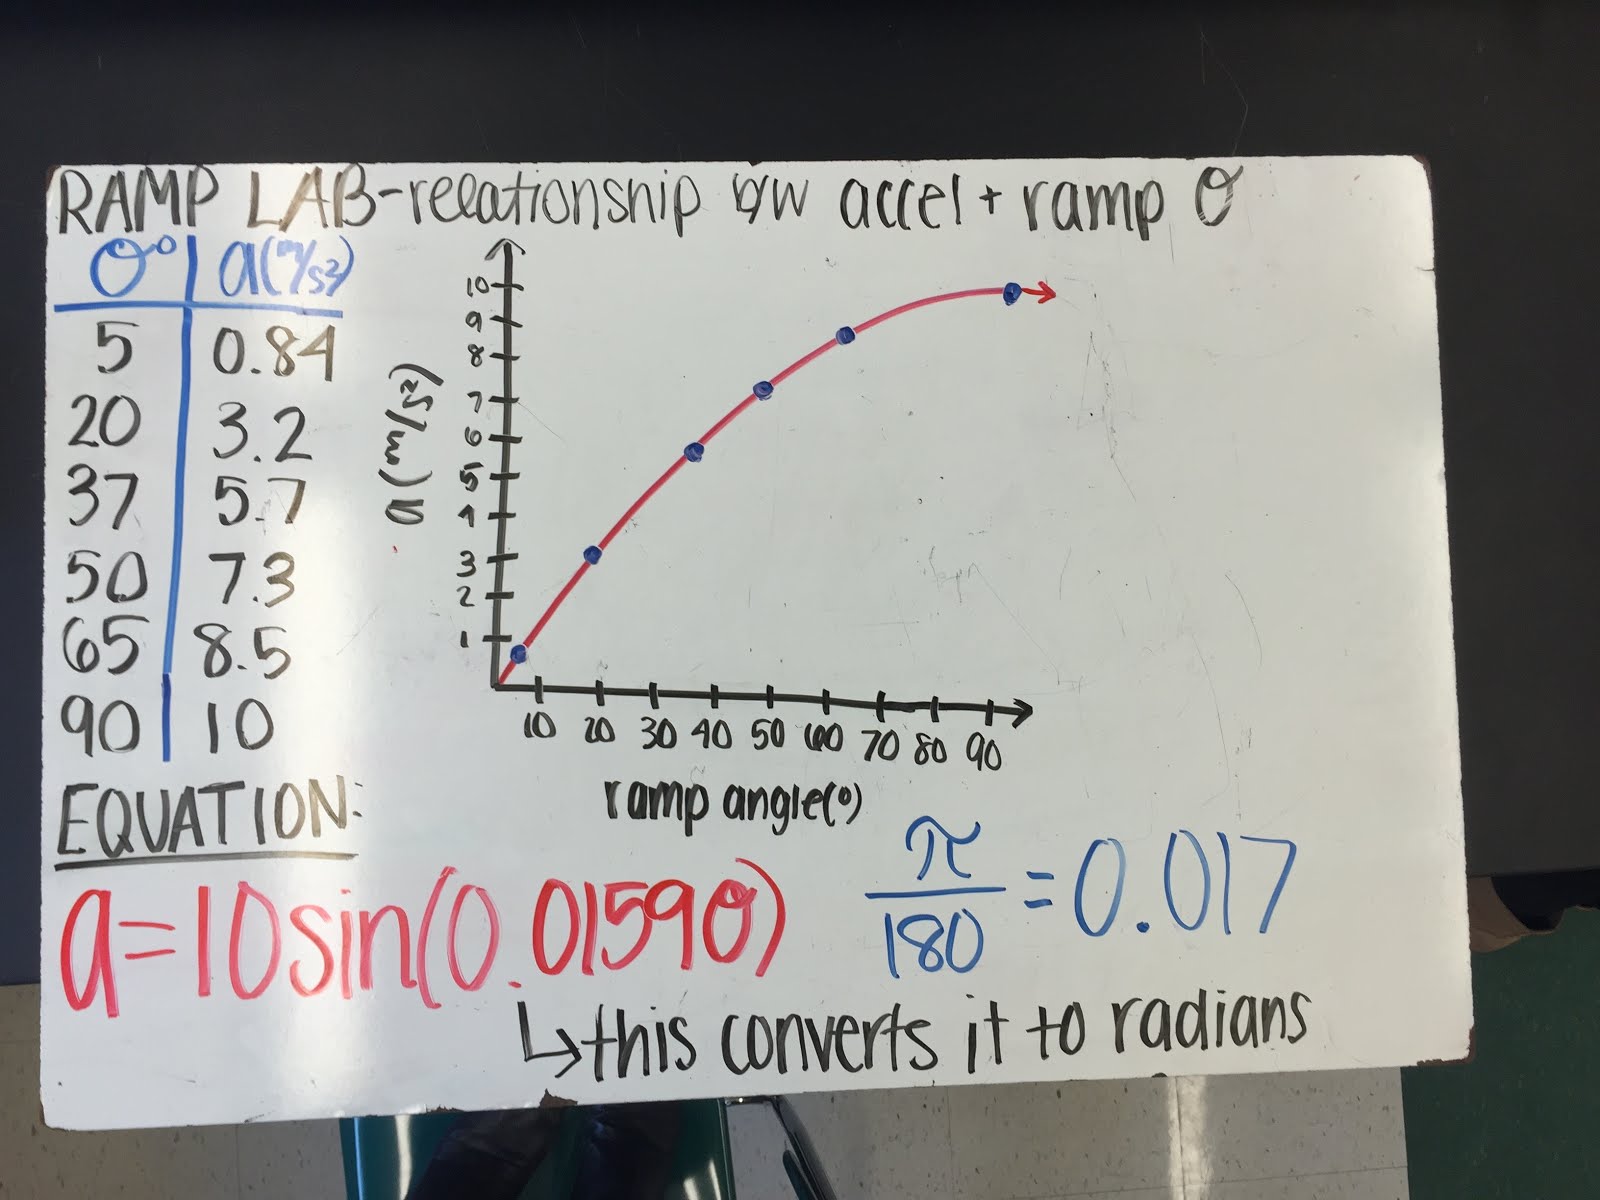 RAMP LAB-relationship b/w accel + ramp θ
θ° | a(m/s²)
5 | 0.84
20 | 3.2
37 | 5.7
50 | 7.3
65 | 8.5
90 | 10
a (m/s²)
10
9
8
7
6
5
4
3
2
1
10 20 30 40 50 60 70 80 90
ramp angle(°)
EQUATION:
a=10sin(0.0159θ)
π/180 = 0.017
↳this converts it to radians